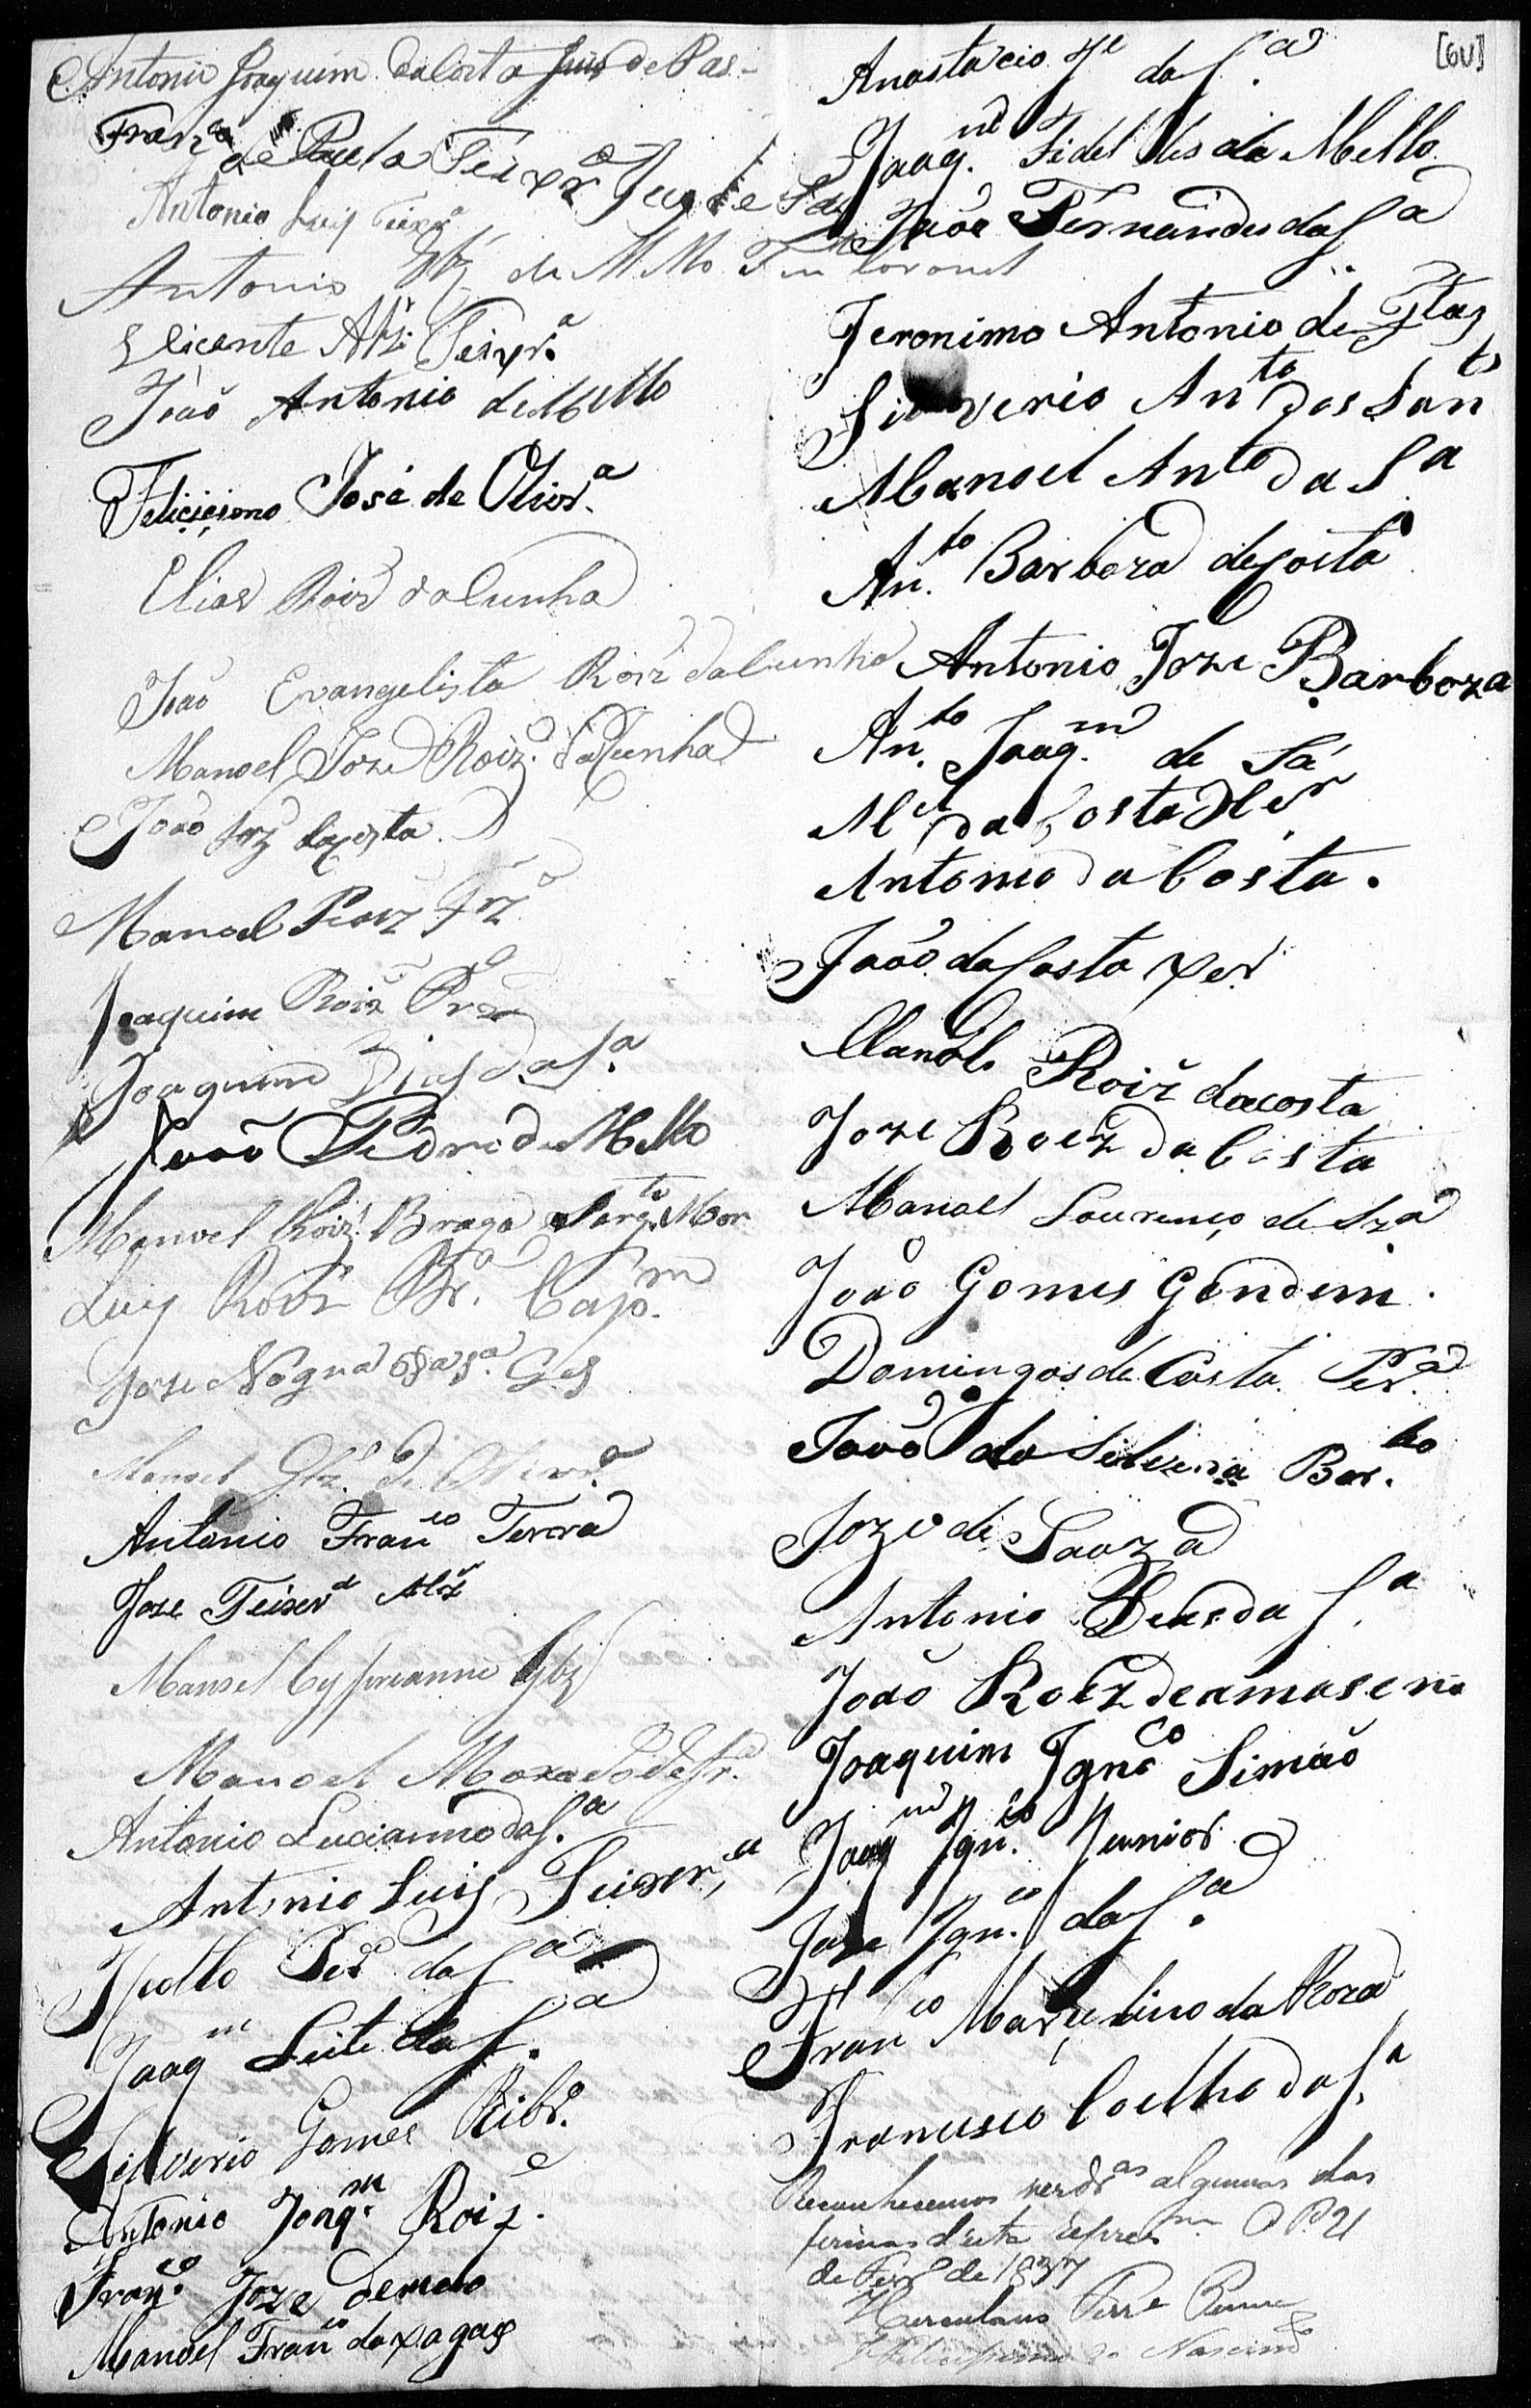 Antonio Joaquim da Costa Juis de Pas
Franco de Paula Teixra Jus de Pas
Antonio Luis Teixra
Antonio de Mello Ten Coronel
Vicente Alz Teixra
João Antonio de Mello
Feliciciono José de Olivra
Elias Roiz da Cunha
João Evangelista Roiz da Cunha
Manoel Joze Roiz da Cunha
João Frz da Costa
Manoel Frz
Joaquim Roiz Pra
Joaquim Dias da Sa
João Pedro de Mello
Manoel Roiz Braga Sargto Mor
Luis Roiz Capm
Joze
Manoel Glz de Olivra
Antonio Franco Terra
Joze Teixera Alvz
Manoel Cyprianno
Manoel Maxado de
Antonio Lucianno da Sa
Antonio Luis Teixer,a
Ipolto Per da Sa
Joaqm Leite da Sa
Silverio Gomes Ribro
Antonio Joaqm Roiz
Franco Joze de melo
Manoel Franco da xagas
[6v]
Anastacio Je da Sa
Joaqm Fidellis de Mello
João Fernandes da Sa
Jeronimo Antonio de Ftas
Silverio Anto dos Sants
Manoel Anto da Sa
Anto Barboza de Costa
Antonio Joze Barboza
Anto Joaqm de Sá
Mel da Costa
Antonio da Costa.
João da Costa xer
Manoel Roiz da costa
Joze Roiz da Costa
Manoel Lourenço de Sza
João Gomes Gondem.
Domingos de Costa Pera
João da Silveira Barbo
Joze de Souza
Antonio Dias da Sa
João Roiz de
Joaquim Ignco Simão
Joaqm Ignco Junior
Joze Ignco da Sa
Franco Marçelino da Roza
Francisco Coelho da Sa
Reconhecemos verdras algumas das
firmas d'esta Represm P. 21
de Fero de 1837
Herculano Ferra Penna
do Nascimto